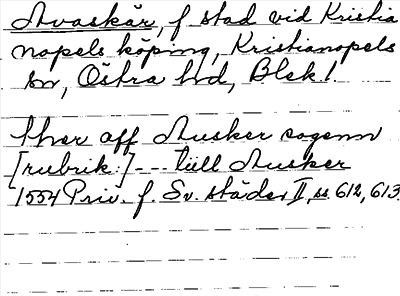 Avaskär, f stad vid Kristia
nopels köping, Kristianopels
sn, Östra hd, Blek l.
ther aff Ausker sogenn
[rubrik:] --- till Ausker
1554 Priv. f. Sv. städer II, ss 612, 613.